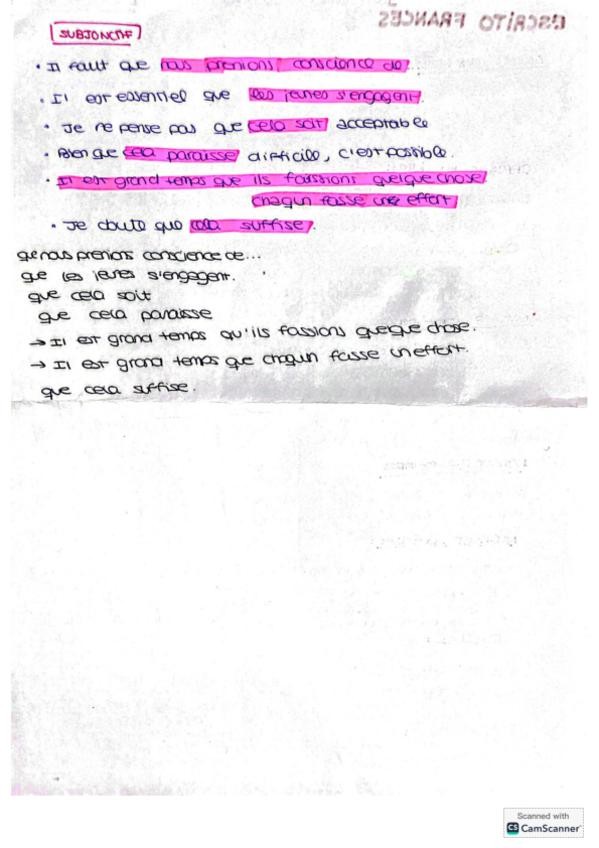 ESCRITO FRANCÉS
SUBJONCTIF
• Il faut que nous prenions conscience de...
• Il est essentiel que les jeunes s'engagent.
• Je ne pense pas que cela soit acceptable
• Bien que cela paraisse difficile, c'est possible.
• Il est grand temps que ils fassions quelque chose.
chaqun fasse une effort.
• Je doute que cela suffise.
que nous prenions conscience de...
que les jeunes s'engagent.
que cela soit
que cela paraisse
→ Il est grand temps qu'ils fassions queque chose.
→ Il est grand temps que chaqun faisse un effort.
que cela suffise.
Scanned with
CS CamScanner